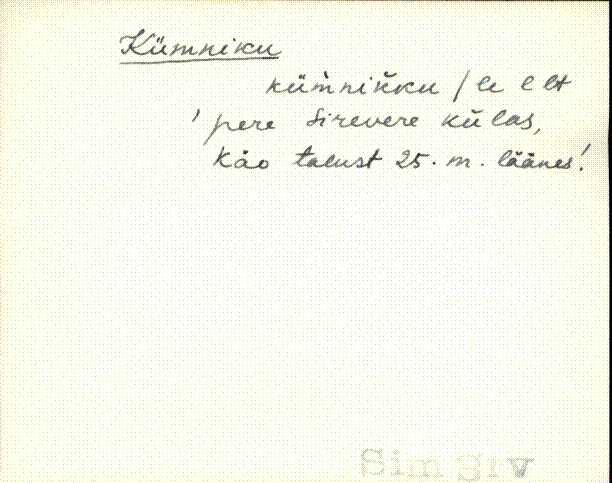 Kümniku
küm̀nik̆ku / le l lt
' pere Sirevere külas,
Käo talust 25. m. läänes!
Sim Srv